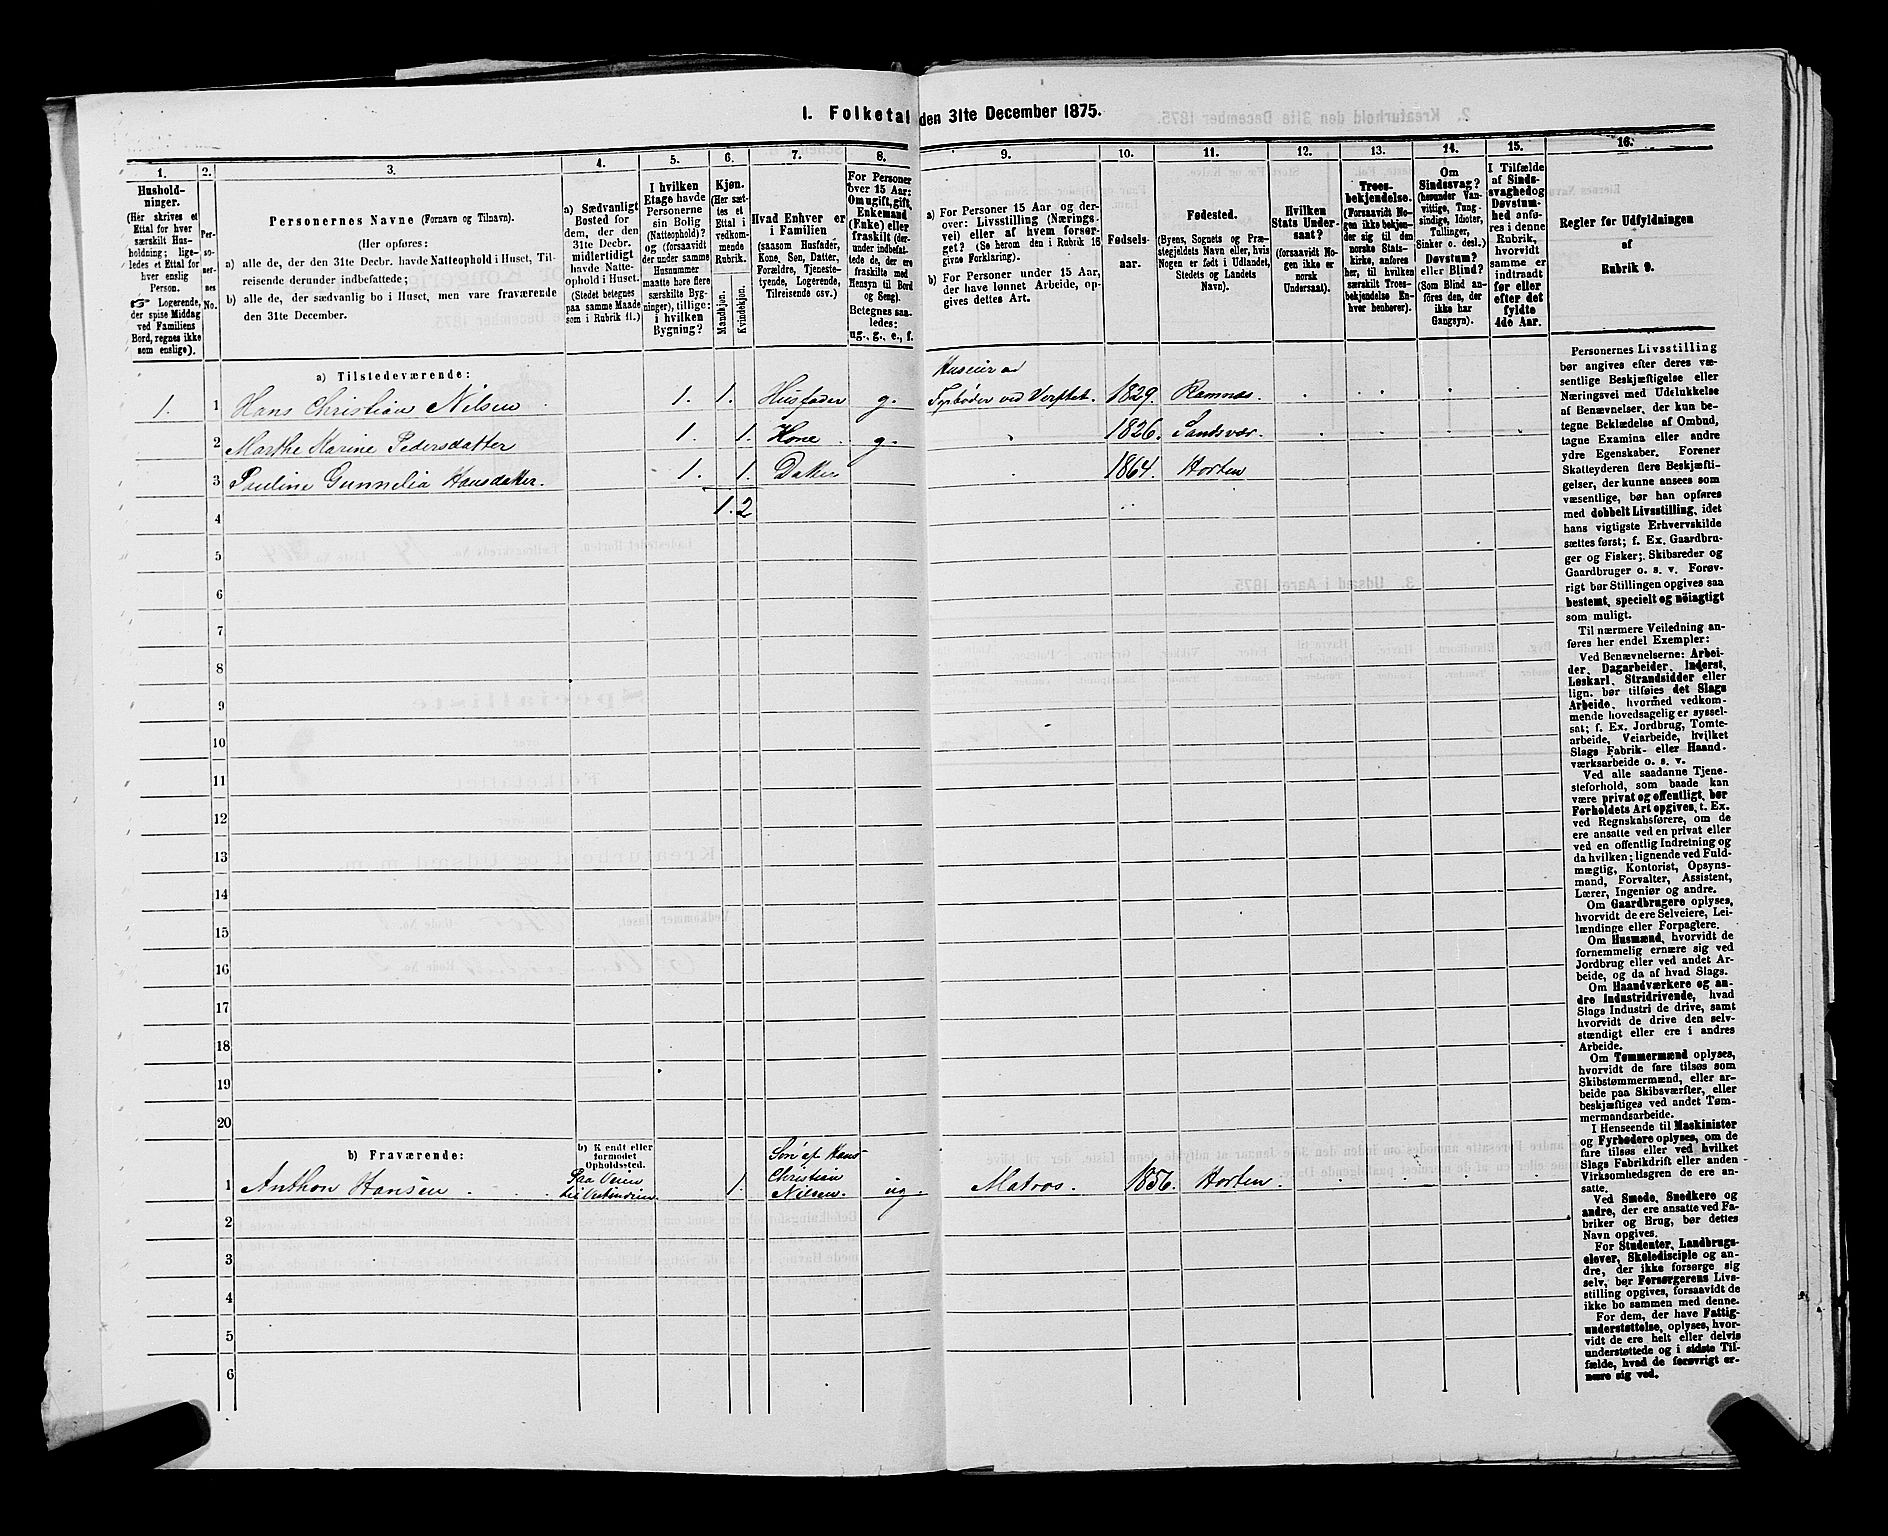 1. Folketal den 31te December 1875.
1.
2.
3.
4.
5.
6.
7.
8.
9.
10.
11.
12.
13.
14.
15.
16.
Hushold-
ninger.
(Her skrives et
Ettal for hver
særskilt Hus-
holdning; lige-
ledes et Ettal for
hver enslig
Person.
☞ Logerende,
der spise Middag
ved Familiens
Bord, regnes ikke
som enslige).
Per-
so-
ner-
nes
No.
Personernes Navne (Fornavn og Tilnavn).
(Her opføres:
a) alle de, der den 31te Decbr. havde Natteophold i Huset, Til-
reisende derunder indbefattede;
b) alle de, der sædvanlig bo i Huset, men vare fraværende
den 31te December.
a) Sædvanligt
Bosted for
dem, der den
31te Decbr.
midlertidigt
havde Natte-
ophold i Huset.
(Stedet betegnes
paa samme Maade
som i Rubrik 11.)
I hvilken
Etage havde
Personerne
sin Bolig
(Natteophold)?
og (forsaavidt
der under samme
Husnummer
maatte høre flere
særskilte Byg-
ninger), tillige:
i hvilken
Bygning?
Kjøn.
(Her sæt-
tes et
Ettal i
vedkom-
mende
Rubrik.
Mandkjøn.
Kvindekjøn.
Hvad Enhver er
i Familien
(saasom Husfader,
Kone, Søn, Datter,
Forældre, Tjeneste-
tyende, Logerende,
Tilreisende osv.)
For Personer
over 15 Aar:
Om ugift, gift,
Enkemand
(Enke) eller
fraskilt (der-
under indbefat-
tede de, der ere
fraskilte med
Hensyn til Bord
og Seng).
Betegnes saa-
ledes:
ug., g., e., f.
a) For Personer 15 Aar og der-
over: Livsstilling (Nærings-
vei) eller af hvem forsør-
get? (Se herom den i Rubrik 16
givne Forklaring).
b) For Personer under 15 Aar,
der have lønnet Arbeide, op-
gives dettes Art.
Fødsels-
aar.
Fødested.
(Byens, Sognets og Præ-
stegjeldets Navn eller, hvis
Nogen er født i Udlandet,
Stedets og Landets
Navn).
Hvilken
Stats Under-
saat?
(forsaavidt No-
gen ikke er
norsk
Undersaat).
Troes-
bekjendelse.
(Forsaavidt No-
gen ikke bekjen-
der sig til den
norske Stats-
kirke, anføres
her, til hvilken
særskilt Troes-
bekjendelse En-
hver henhører).
Om
Sindssvag?
(herunder Van-
vittige, Tung-
sindige, Idioter,
Tullinger,
Sinker o. desl.)
Døvstum?
eller Blind?
(Som Blind an-
føres den, der
ikke har
Gangsyn).
I Tilfælde
af Sinds-
svaghed og
Døvstum-
hed anfø-
res i denne
Rubrik,
hvorvidt
samme er
indtraadt
før eller
efter det
fyldte
4de Aar.
Regler for Udfyldningen
af
Rubrik 9.
a) Tilstedeværende:
1. 1 Hans Christian Nilsen 1. 1. Husfader g. Huseier og Fyrbøder ved Verftet. 1829. Ramnæs.
2 Marthe Karine Pedersdatter 1. 1. Kone g. 1826. Sandsvær.
3 Pauline Gunnelia Hansdatter. 1. 1. Datter 1864. Horten
4 1. 2
5
6
7
8
9
10
11
12
13
14
15
16
17
18
19
20
b) Fraværende:
b) Kjendt eller
formodet
Opholdssted.
1 Anthon Hansen Paa Veien til 1. Søn af Hans Christian Nilsen. ug. Matros. 1856. Horten.
2
3
4
5
6
Personernes Livsstilling
bør angives efter deres væ-
sentlige Beskjæftigelse eller
Næringsvei med Udelukkelse
af Benævnelser, der kun be-
tegne Beklædelse af Ombud,
tagne Examina eller andre
ydre Egenskaber. Forener
Skatteyderen flere Beskjæfti-
gelser, der kunne ansees som
væsentlige, bør han opføres
med dobbelt Livsstilling, idet
hans vigtigste Erhvervskilde
sættes først; f. Ex. Gaardbru-
ger og Fisker; Skibsreder og
Gaardbruger o. s. v. Forøv-
rigt bør Stillingen opgives saa
bestemt, specielt og nöiagtigt
som muligt.
Til nærmere Veiledning an-
føres her endel Exempler:
Ved Benævnelserne: Arbei-
der, Dagarbeider, Inderst,
Løskarl, Strandsidder eller
lign. bør tilføies det Slags
Arbeide, hvormed vedkom-
mende hovedsagelig er syssel-
sat; f. Ex. Jordbrug, Tomte-
arbeide, Veiarbeide, hvilket
Slags Fabrik- eller Haand-
værksarbeide o. s. v.
Ved alle saadanne Tjene-
steforhold, som baade kan
være privat og offentligt, bør
Forholdets Art opgives, t. Ex.
ved Regnskabsførere, om de
ere ansatte ved en privat eller
ved en offentlig Indretning og
da hvilken; lignende ved Fuld-
mægtig, Kontorist, Opsyns-
mand, Forvalter, Assistent,
Lærer, Ingeniør og andre.
Om Gaardbrugere oplyses,
hvorvidt de ere Selveiere, Lei-
lændinge eller Forpagtere.
Om Husmænd, hvorvidt de
fornemmelig ernære sig ved
Jordbrug eller ved andet Ar-
beide, og da af hvad Slags.
Om Haandværkere og an-
dre Industridrivende, hvad
Slags Industri de drive, samt
hvorvidt de drive den selv-
stændigt eller ere i andres
Arbeide.
Om Tømmermænd oplyses,
hvorvidt de fare tilsøs som
Skibstømmermænd, eller ar-
beide paa Skibsværfter, eller
beskjæftiges ved andet Tøm-
mermandsarbeide.
I Henseende til Maskinister
og Fyrbødere oplyses, om de
fare tilsøs eller ved hvilket
Slags Fabrikdrift eller anden
Virksomhedsgren de ere an-
satte.
Ved Smede, Snedkere og
andre, der ere ansatte ved Fa-
briker og Brug, bør dettes
Navn opgives.
For Studenter, Landbrugs-
elever, Skoledisciple og an-
dre, der ikke forsørge sig
selv, bør Forsørgerens Livs-
stilling opgives, forsaavidt de
ikke bo sammen med denne.
For dem, der have Fattig-
understøttelse, oplyses, hvor-
vidt de ere helt eller delvis
understøttede og i sidste Til-
fælde, hvad de forøvrigt er-
nære sig ved.